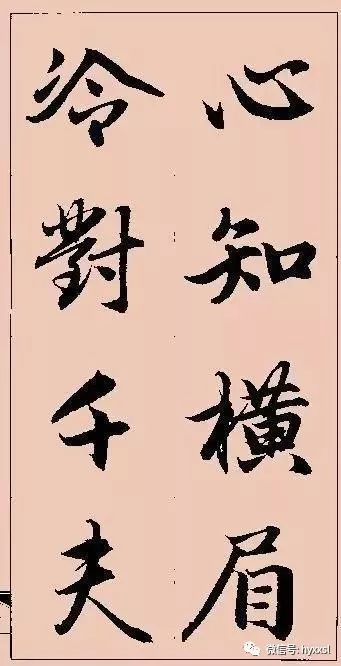 心知橫眉
冷對千夫
微信号: hyxxsl